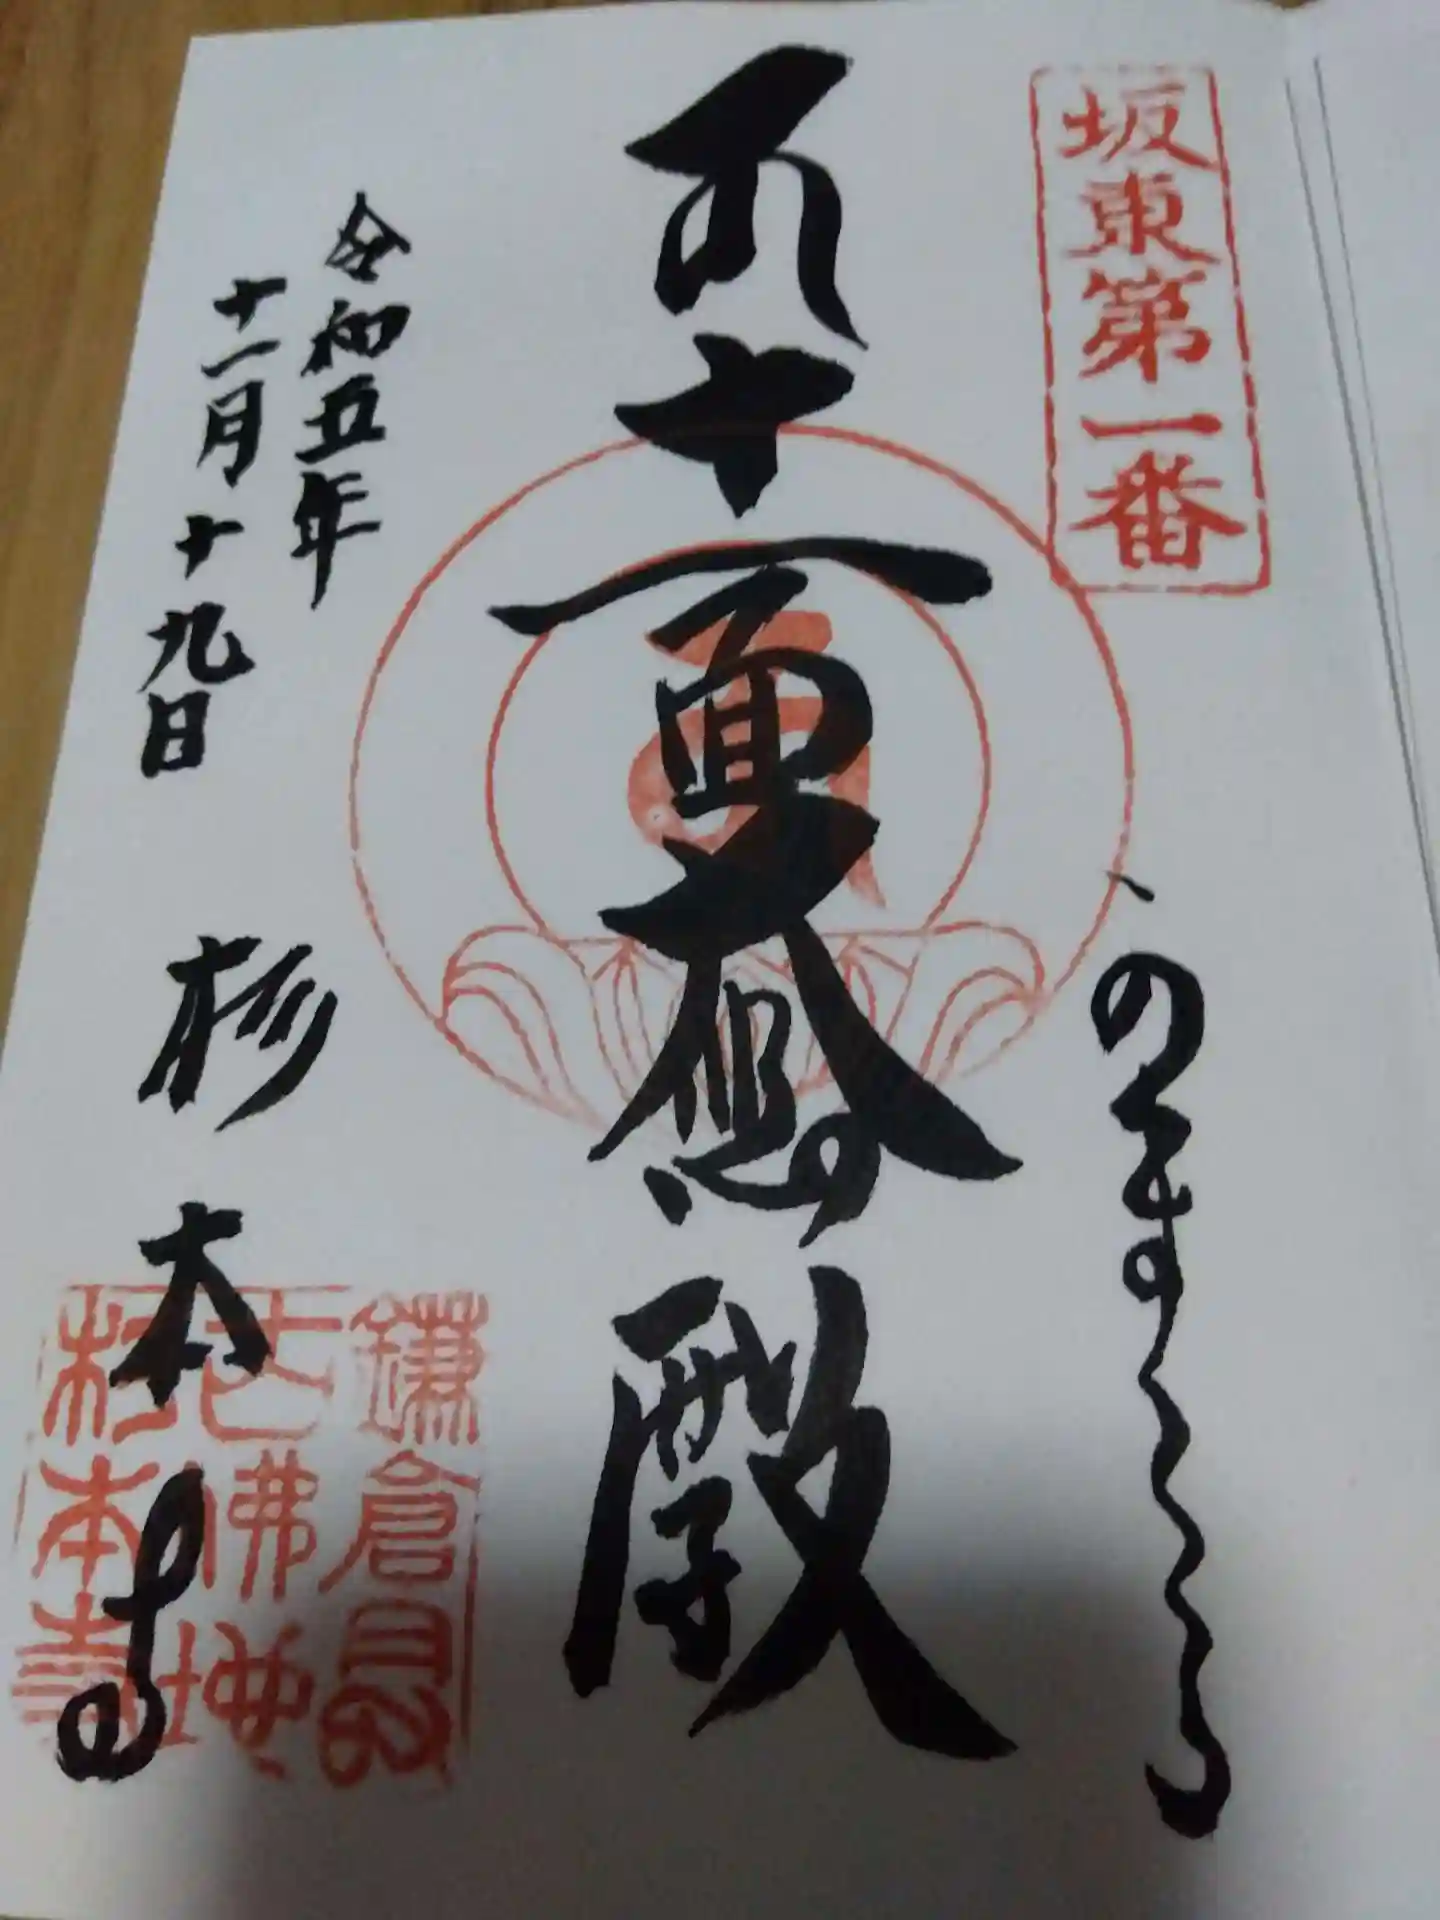 坂東第一番
十一面大悲殿
令和五年
十一月十九日
杉本寺
鎌倉最
古佛地
杉本寺